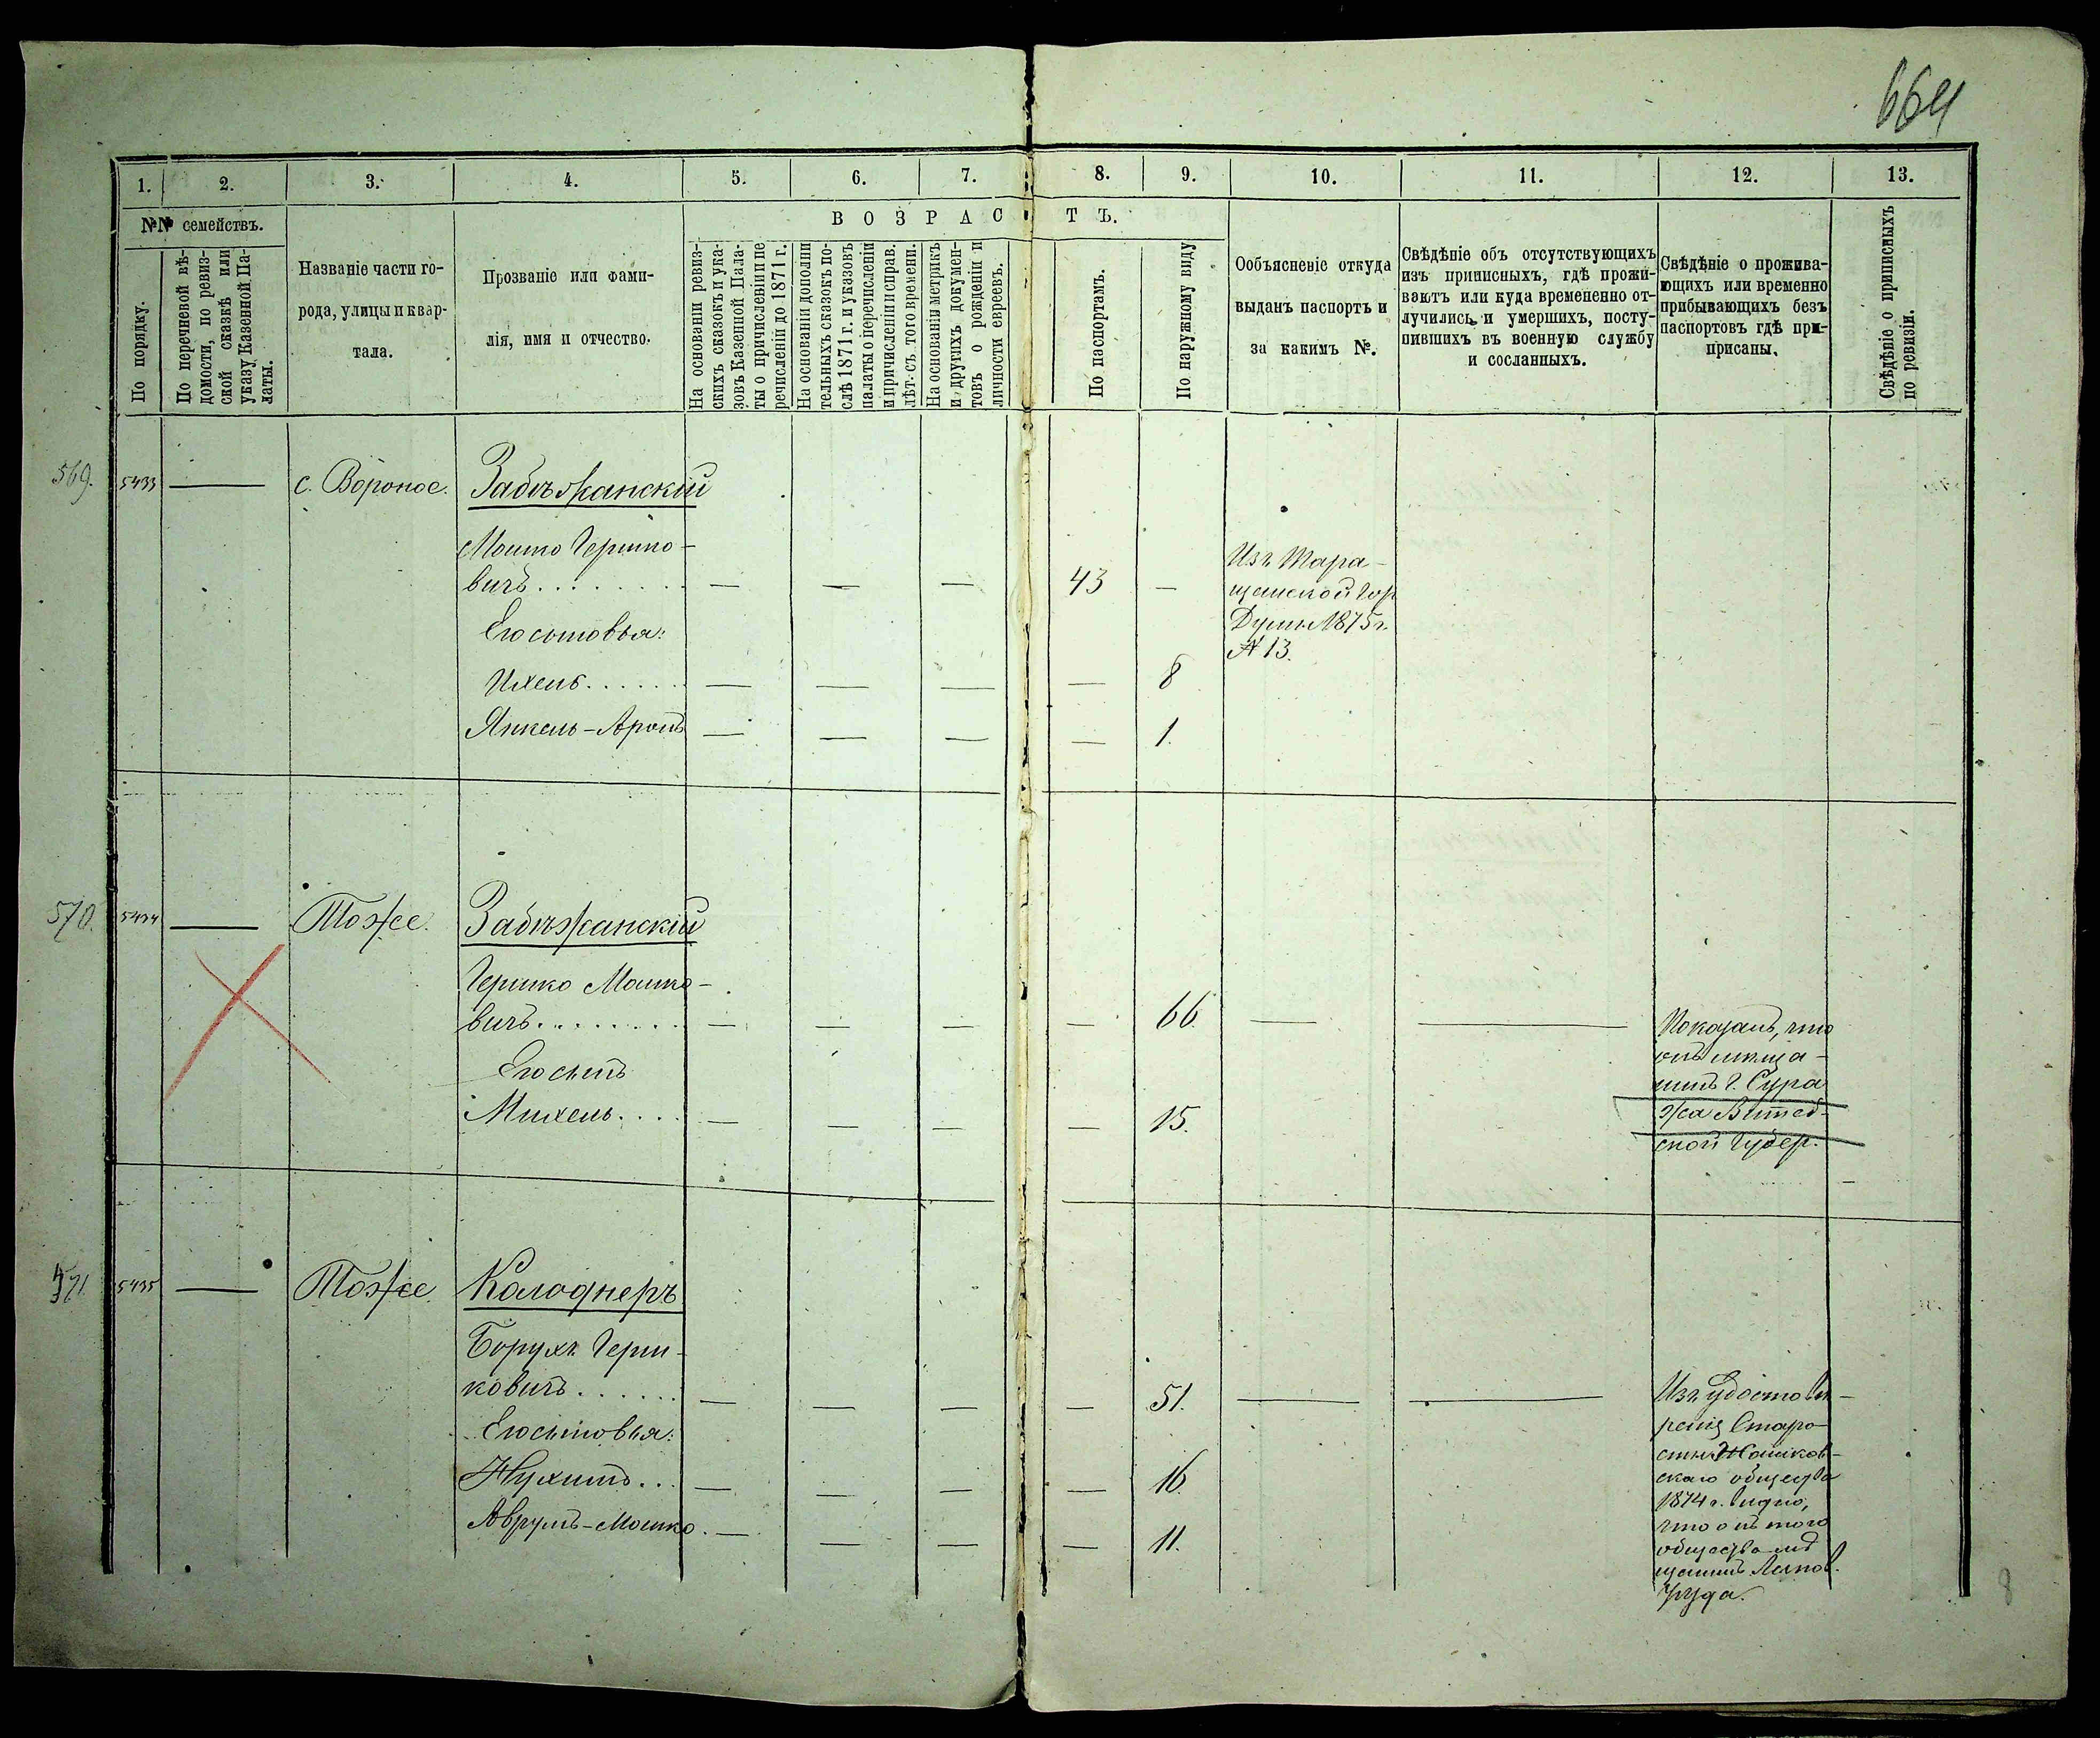 664
1. 2. 3. 4. 5. 6. 7. 8. 9. 10. 11. 12. 13.
№№ семействъ.
В О З Р А С Т Ъ.
По порядку.
По перечневой вѣ-
домости, по ревиз-
ской сказкѣ или
указу Казенной Па-
латы.
Названіе части го-
рода, улицы и квар-
тала.
Прозваніе или фами-
лія, имя и отчество.
На основаніи ревиз-
скихъ сказокъ и ука-
зовъ Казенной Пала-
ты о причисленіи и пе
речисленій до 1871 г.
На основаніи дополни
тельныхъ сказокъ по-
слѣ 1871 г. и указовъ
палаты о перечисленіи
и причисленіи и справ.
лѣт. съ того времени.
На основаніи метрикъ
и другихъ докумен-
товъ о рожденіи и
личности евреевъ.
По паспортамъ.
По наружному виду
Ообъясненіе откуда
выданъ паспортъ и
за какимъ №.
Свѣдѣніе объ отсутствующихъ
изъ приписныхъ, гдѣ прожи-
ваютъ или куда временено от-
лучились и умершихъ, посту-
пившихъ въ военную службу
и сосланныхъ.
Свѣдѣніе о прожива-
ющихъ или временно
прибывающихъ безъ
паспортовъ гдѣ при-
писаны.
Свѣдѣніе о приписныхъ
по ревизіи.
569. 5433 — с. Вороное. Забѣжанскій
Мошко Гершко-
вичъ........ — — — 43 —
Изъ Тара-
щанской Гор
Думы 1875 г.
№ 13.
Его сыновья:
Ихель...... — — — — 8
Янкель-Аронъ — — — — 1.
570. 5434 — Тоже. Забѣжанскій
Гершко Мошко-
вичъ........ — — — — 66. — —
Показалъ, что
онъ мѣща-
нинъ г. Сура
жа Витеб-
ской Губер.
Его сынъ
Михель.... — — — — 15.
571. 5435 — Тоже Колоднеръ
Борухъ Герш-
ковичъ...... — — — — 51. — —
Изъ удостовѣ-
ренія Старо-
сты Жашков-
скаго общества
1874 г. видно,
что онъ того
общества мѣ
щанинъ Липов.
уѣзда.
Его сыновья:
Нухимъ... — — — — 16.
Аврумъ-Мошко. — — — — 11.
8